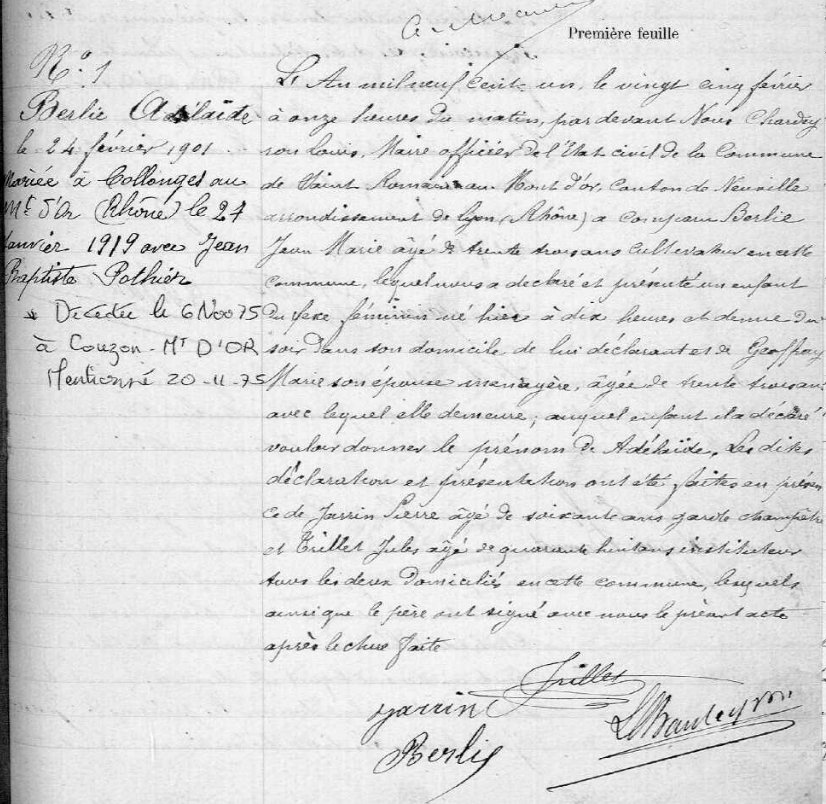 Première feuille
N° 1
Berlie Adélaïde
le 24 février 1901
Mariée à Collonges au
Mt d'Or (Rhône) le 27
janvier 1919 avec Jean
Baptiste Pothier
Décédée le 6 Nov 75
à Couzon-Mt D'OR
Mentionné 20-11-75
L'An mil neuf cent un, le vingt cinq février
à onze heures du matin, par devant Nous
Louis, Maire officier de l'Etat civil de la Commune
de Saint Romain au Mont d'or, Canton de Neuville
arrondissement de Lyon (Rhône) a comparu Berlie
Jean Marie âgé de trente trois ans cultivateur en cette
commune, lequel nous a déclaré et présenté un enfant
du sexe féminin né hier à dix heures et demie du
soir dans son domicile de lui déclarant et de Geoffray
Marie son épouse ménagère, âgée de trente trois ans
avec lequel elle demeure; auquel enfant il a déclaré
vouloir donner le prénom de Adélaïde. Les dites
déclaration et présentation ont été faites en présen
ce de Jarrin Pierre âgé de soixante ans garde champêtre
et Trillet Jules âgé de quarante huit ans instituteur
tous les deux domiciliés en cette commune, lesquels
ainsi que le père ont signé avec nous le présent acte
après lecture faite
Trillet
Jarrin
Berlie